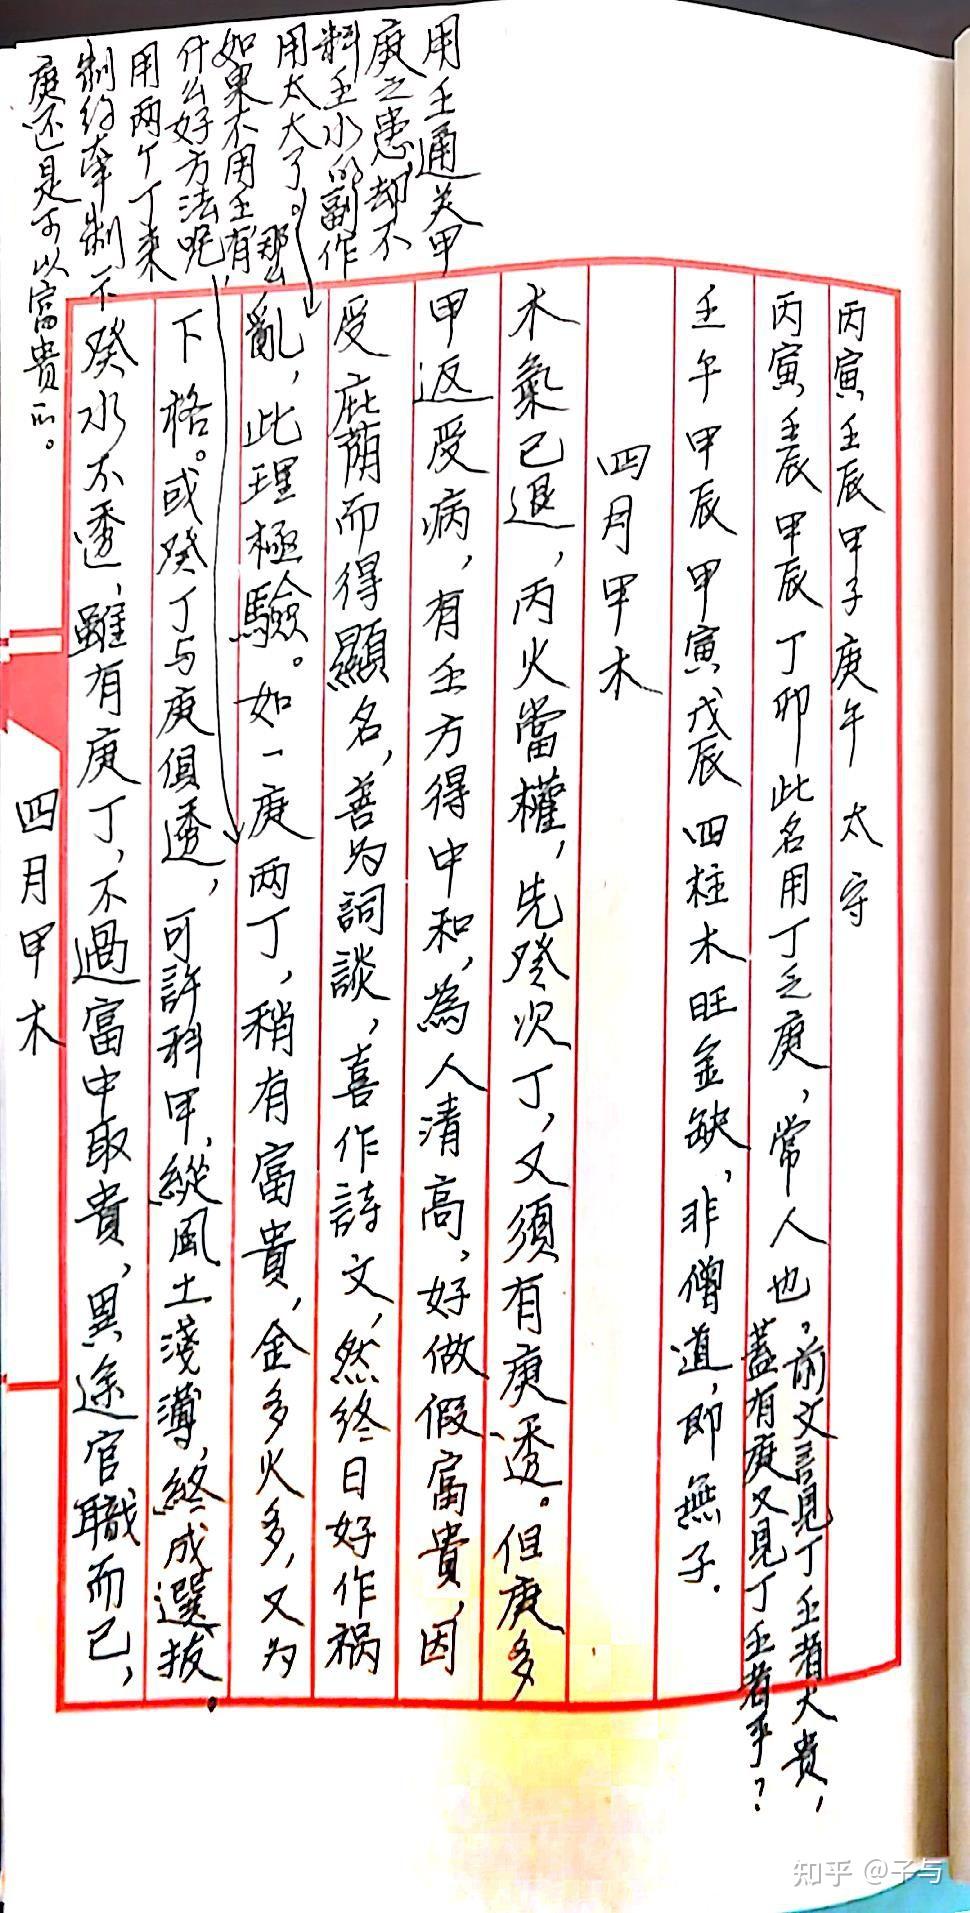 丙寅 壬辰 甲子 庚午 太守
丙寅 壬辰 甲辰 丁卯 此名用丁乏庚，常人也，
前文言見丁壬者大貴，
蓋有庚又見丁壬者乎？
壬午 甲辰 甲寅 戊辰 四柱木旺金缺，非僧道，即無子.
四月甲木
木氣已退，丙火當權，先癸次丁，又須有庚透。但庚多
甲返受病，有壬方得中和，為人清高，好做假富貴，因
受庇荫而得顯名，善为詞談，喜作詩文，然終日好作祸
亂，此理極驗。如一庚两丁，稍有富貴，金多火多，又为
下格。或癸丁与庚俱透，可許科甲，縱風土淺薄，終成選拔。
癸水不透，雖有庚丁，不過富中取貴，異途官職而已，
四月甲木
用壬通关甲
庚之患，却不
料壬水的副作
用太大了。那么
如果不用壬有
什么好方法呢，
用两个丁来
制约牵制下
庚还是可以富貴的。
知乎 @子与